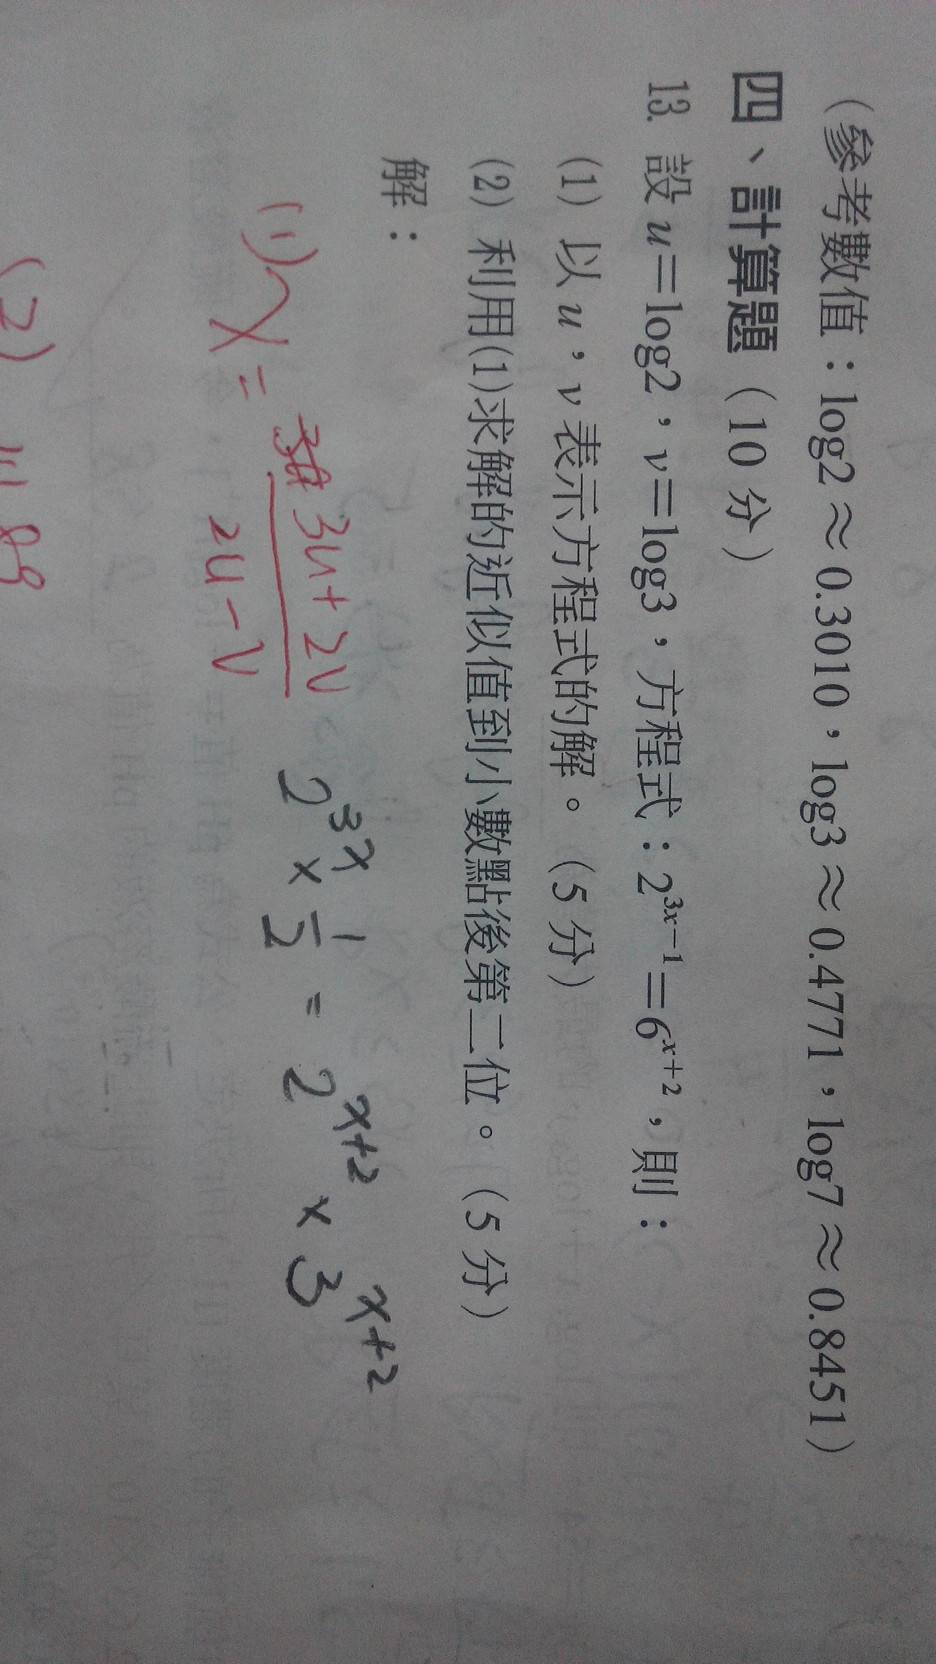 (參考數值:log2≈0.3010,log3≈0.4771,log7≈0.8451)
四、計算題(10分)
13. 設u=log2,v=log3,方程式:2^{3x-1}=6^{x+2},則:
(1) 以u,v表示方程式的解。(5分)
(2) 利用(1)求解的近似值到小數點後第二位。(5分)
解:
(1) x = \frac{3u+2v}{2u-v}
2^{3x} × \frac{1}{2} = 2^{x+2} × 3^{x+2}
(2) 11.88